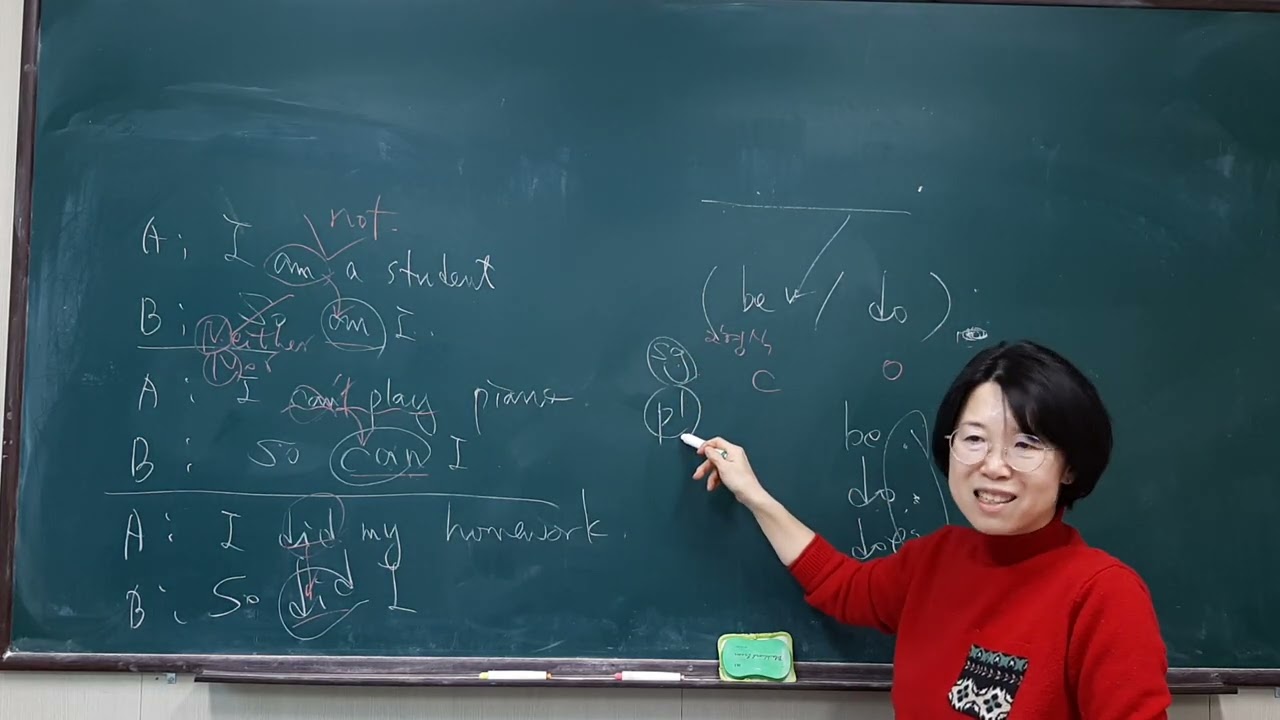 not
A: I am a student
B: So am I.
Neither
Nor
A: I can't play piano.
B: So can I
A: I did my homework.
B: So did I
(be / do).
sg
C O
pl
be
do
does